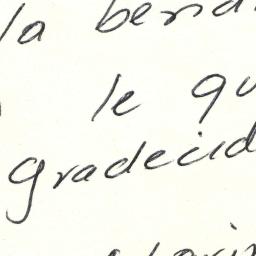 la bend
le qu
gradecid